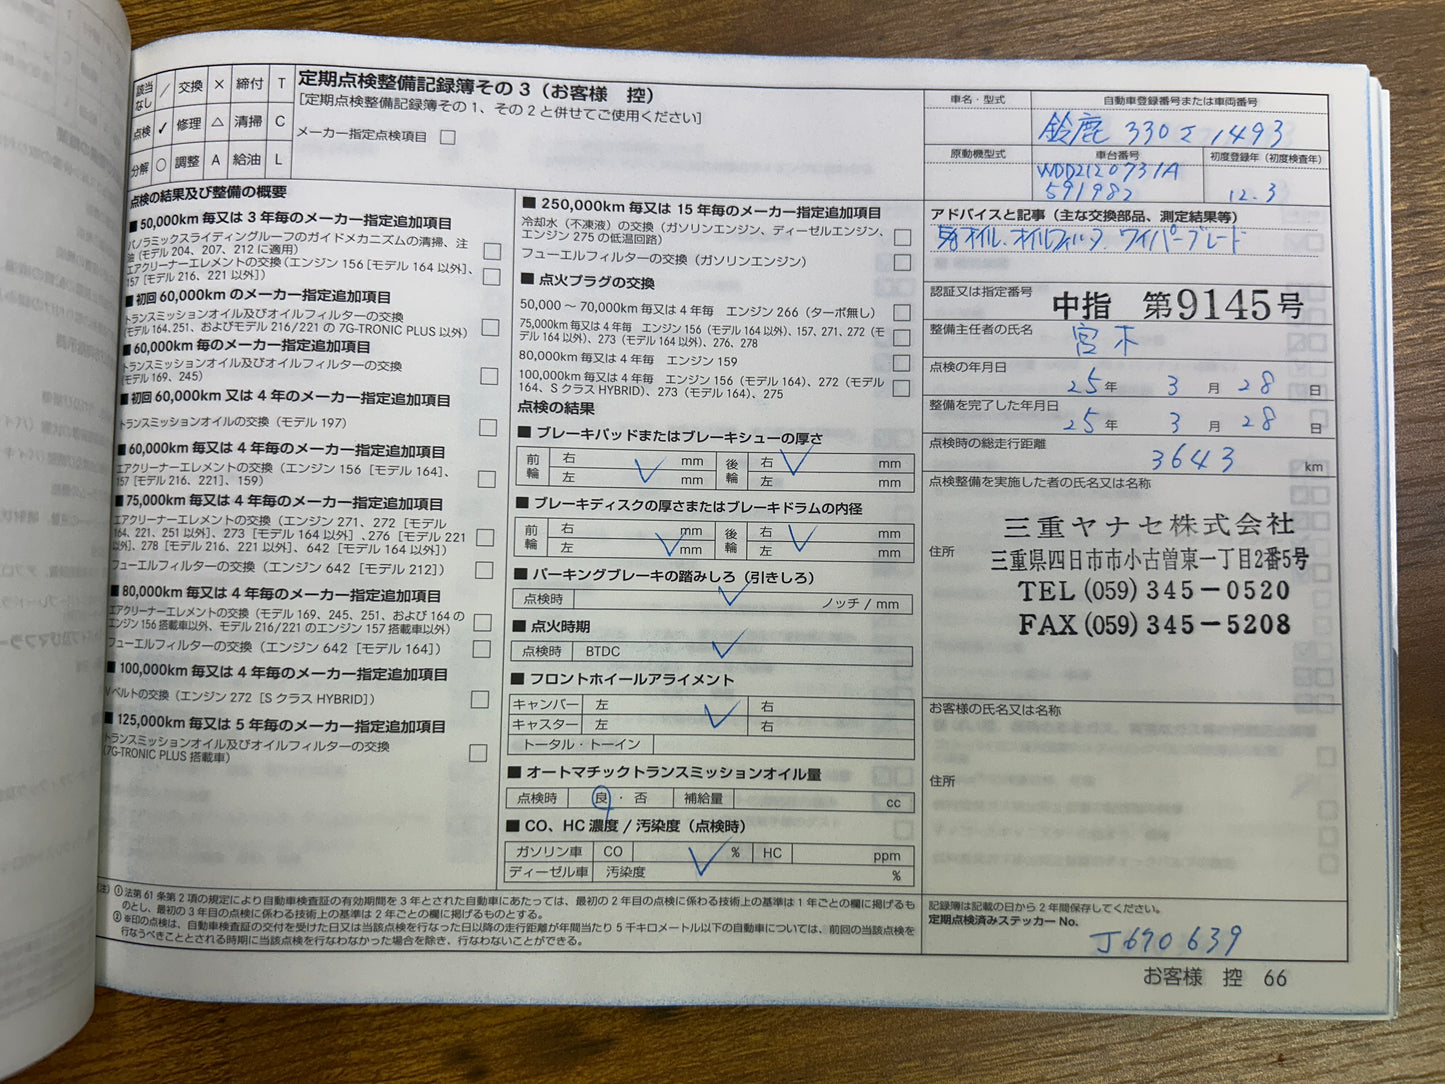 該当なし ／ 交換 × 締付 T
点検 ✓ 修理 △ 清掃 C
分解 ○ 調整 A 給油 L
定期点検整備記録簿その3（お客様　控）
[定期点検整備記録簿その1、その2と併せてご使用ください]
メーカー指定点検項目 □
点検の結果及び整備の概要
■ 50,000km 毎又は 3 年毎のメーカー指定追加項目
パノラミックスライディングルーフのガイドメカニズムの清掃、注
油（モデル 204、207、212 に適用） □
エアクリーナーエレメントの交換（エンジン 156［モデル 164 以外］、
157［モデル 216、221 以外］） □
■ 初回 60,000km のメーカー指定追加項目
トランスミッションオイル及びオイルフィルターの交換
（モデル 164、251、およびモデル 216/221 の 7G-TRONIC PLUS 以外） □
■ 60,000km 毎のメーカー指定追加項目
トランスミッションオイル及びオイルフィルターの交換
（モデル 169、245） □
■ 初回 60,000km 又は 4 年のメーカー指定追加項目
トランスミッションオイルの交換（モデル 197） □
■ 60,000km 毎又は 4 年毎のメーカー指定追加項目
エアクリーナーエレメントの交換（エンジン 156［モデル 164］、
157［モデル 216、221］、159） □
■ 75,000km 毎又は 4 年毎のメーカー指定追加項目
エアクリーナーエレメントの交換（エンジン 271、272［モデル
164、221、251 以外］、273［モデル 164 以外］、276［モデル 221
以外］、278［モデル 216、221 以外］、642［モデル 164 以外］） □
フューエルフィルターの交換（エンジン 642［モデル 212］） □
■ 80,000km 毎又は 4 年毎のメーカー指定追加項目
エアクリーナーエレメントの交換（モデル 169、245、251、および 164 の
エンジン 156 搭載車以外、モデル 216/221 のエンジン 157 搭載車以外） □
フューエルフィルターの交換（エンジン 642［モデル 164］） □
■ 100,000km 毎又は 4 年毎のメーカー指定追加項目
Vベルトの交換（エンジン 272［S クラス HYBRID］） □
■ 125,000km 毎又は 5 年毎のメーカー指定追加項目
トランスミッションオイル及びオイルフィルターの交換
（7G-TRONIC PLUS 搭載車） □
■ 250,000km 毎又は 15 年毎のメーカー指定追加項目
冷却水（不凍液）の交換（ガソリンエンジン、ディーゼルエンジン、
エンジン 275 の低温回路） □
フューエルフィルターの交換（ガソリンエンジン） □
■ 点火プラグの交換
50,000 ～ 70,000km 毎又は 4 年毎　エンジン 266（ターボ無し） □
75,000km 毎又は 4 年毎　エンジン 156（モデル 164 以外）、157、271、272（モ
デル 164 以外）、273（モデル 164 以外）、276、278 □
80,000km 毎又は 4 年毎　エンジン 159 □
100,000km 毎又は 4 年毎　エンジン 156（モデル 164）、272（モデル
164、S クラス HYBRID）、273（モデル 164）、275 □
点検の結果
■ ブレーキパッドまたはブレーキシューの厚さ
前輪 右 mm 後輪 右 ✓ mm
左 ✓ mm 左 mm
■ ブレーキディスクの厚さまたはブレーキドラムの内径
前輪 右 mm 後輪 右 ✓ mm
左 ✓ mm 左 mm
■ パーキングブレーキの踏みしろ（引きしろ）
点検時 ✓ ノッチ / mm
■ 点火時期
点検時 BTDC ✓
■ フロントホイールアライメント
キャンバー 左 ✓ 右
キャスター 左 右
トータル・トーイン
■ オートマチックトランスミッションオイル量
点検時 良 ・ 否 補給量 cc
■ CO、HC 濃度 / 汚染度（点検時）
ガソリン車 CO ✓ % HC ppm
ディーゼル車 汚染度 %
車名・型式 自動車登録番号または車両番号
鈴鹿 330 さ 1493
原動機型式 車台番号 初度登録年（初度検査年）
WDD2120731A
591982 12.3
アドバイスと記事（主な交換部品、測定結果等）
オイル、オイルフィルタ ワイパーブレード
認証又は指定番号 中指　第9145号
整備主任者の氏名 宮木
点検の年月日
25 年 3 月 28 日
整備を完了した年月日
25 年 3 月 28 日
点検時の総走行距離
3643 km
点検整備を実施した者の氏名又は名称
三重ヤナセ株式会社
住所 三重県四日市市小古曽東一丁目2番5号
TEL (059) 345－0520
FAX (059) 345－5208
お客様の氏名又は名称
住所
（注）① 法第 61 条第 2 項の規定により自動車検査証の有効期間を 3 年とされた自動車にあたっては、最初の 2 年目の点検に係わる技術上の基準は 1 年ごとの欄に掲げるも
のとし、最初の 3 年目の点検に係わる技術上の基準は 2 年ごとの欄に掲げるものとする。
② ※印の点検は、自動車検査証の交付を受けた日又は当該点検を行なった日以降の走行距離が年間当たり 5 千キロメートル以下の自動車については、前回の当該点検を
行なうべきこととされる時期に当該点検を行なわなかった場合を除き、行なわないことができる。
記録簿は記載の日から 2 年間保存してください。
定期点検済みステッカー No.
J690639
お客様　控　66